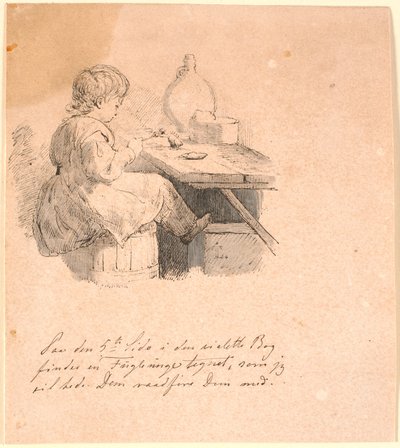 Paa den 5te Side i den violette Bog
findes en Fugleunge tegnet, som jeg
vil bede Dem raadføre Dem med.